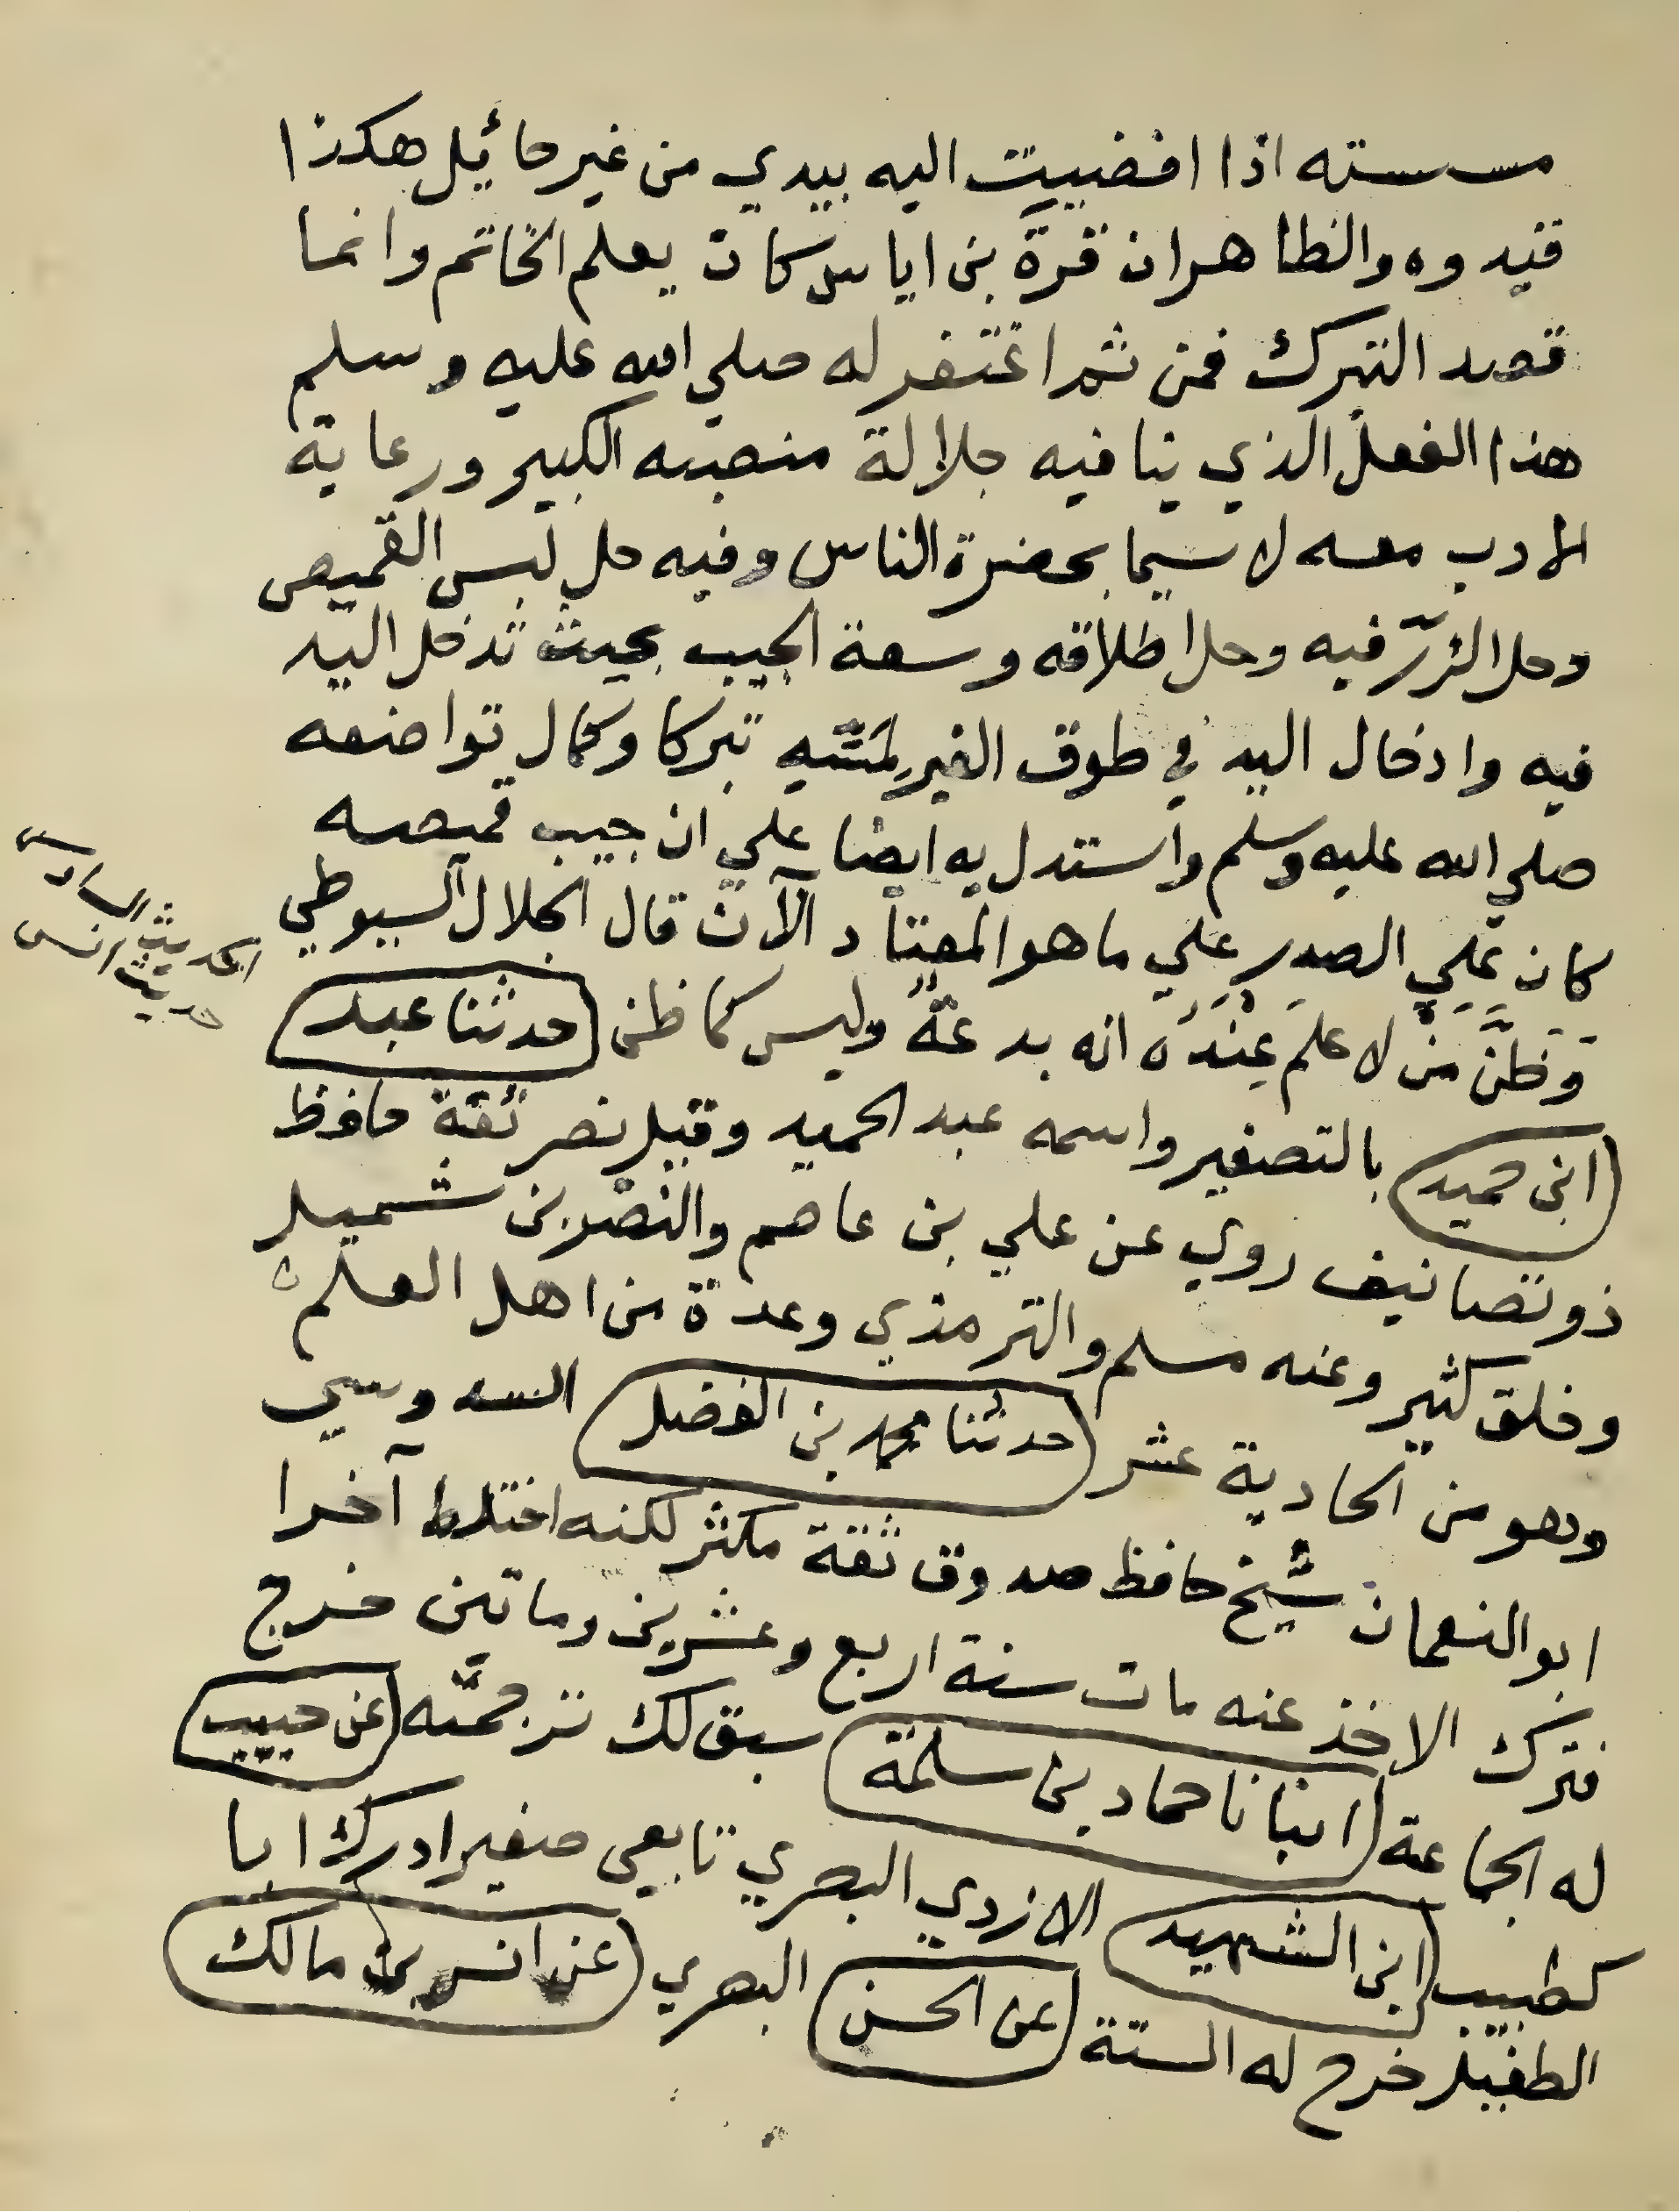 مسسته اذا افضيت اليه بيدي من غير حائيل هكذا
قيدوه والظاهر ان قرة بن اياس كان يعلم الخاتم وانما
قصد التبرك فمن ثم اغتفر له صلي الله عليه وسلم
هذا الفعل الذي ينا فيه جلالة منصبه الكبير ورعاية
الادب معه لا سيما بحضرة الناس وفيه حل لبس القميص
وحل الزرّ فيه وحل اطلاقه وسعة الجيب بحيث تدخل اليد
فيه وادخال اليد في طوق الغير لمسّه تبركا وكمال تواضعه
صلي الله عليه وسلم واستدل به ايضا علي ان جيب قميصه
كان علي الصدر علي ما هو المعتاد الآن قال الجلال السيوطي
وَظَنَّ مَنْ لا علم عِنْدَه انه بدعة وليس كما ظن حدثنا عبد
ابن حميد بالتصغير واسمه عبد الحميد وقيل نصر ثقة حافظ
ذو تصانيف روي عن علي بن عاصم والنضر بن شميل
وخلق كثير وعنه مسلم والترمذي وعدة من اهل العلم
وهو من الحادية عشر حدثنا محمد بن الفضل السدوسي
ابو النعمان شيخ حافظ صدوق ثقة مكثر لكنه اختلط آخرا
فترك الاخذ عنه مات سنة اربع وعشرين وماتين خرج
له الجماعة انبانا حماد بن سلمة سبق لك ترجمته عن حبيب
كطبيب ابن الشهيد الازدي البصري تابعي صغير ادرك ابا
الطفيل خرج له الستة عن الحسن البصري عن انس بن مالك
الحديث السادس
حديث انس